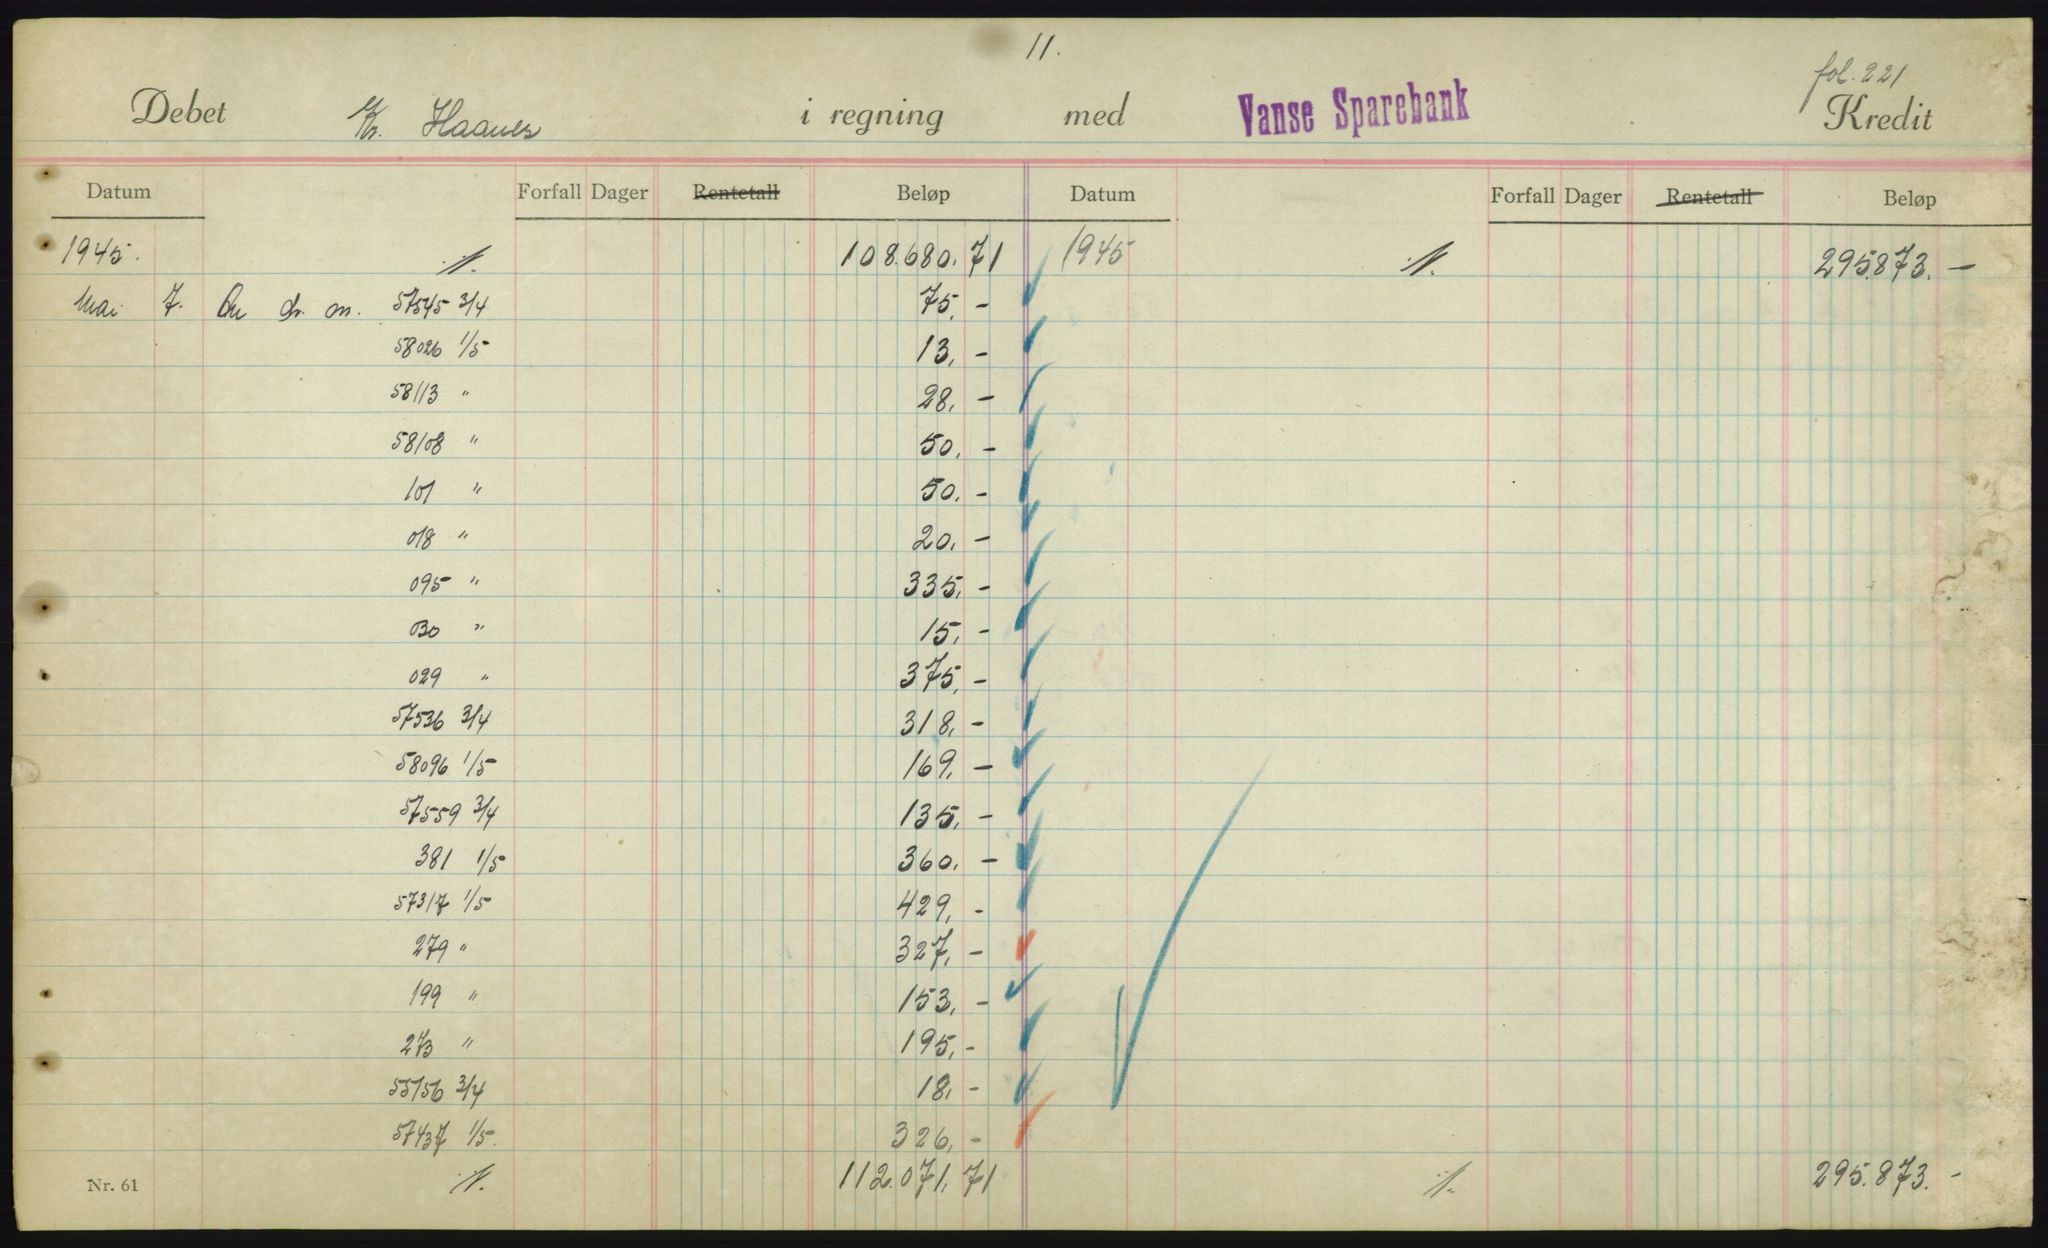 11.
fol. 221
Debet Kr. Haanes i regning med Vanse Sparebank Kredit
Datum Forfall Dager Rentetall Beløp Datum Forfall Dager Rentetall Beløp
1945. 108.680.71 1945 295.873.—
Mai 7. 57545 3/4 75.-
58026 1/5 13,-
58113 " 28,-
58108 " 50,-
101 " 50.-
018 " 20,-
095 " 335,-
030 " 15,-
029 " 375,-
57536 3/4 318,-
58096 1/5 169,-
57559 3/4 135,-
381 1/5 360.-
57317 1/5 429,-
279 " 327,-
199 " 153,-
273 " 195,-
55156 3/4 18,-
57437 1/5. 326,-
Nr. 61 112.071.71 295.873.-